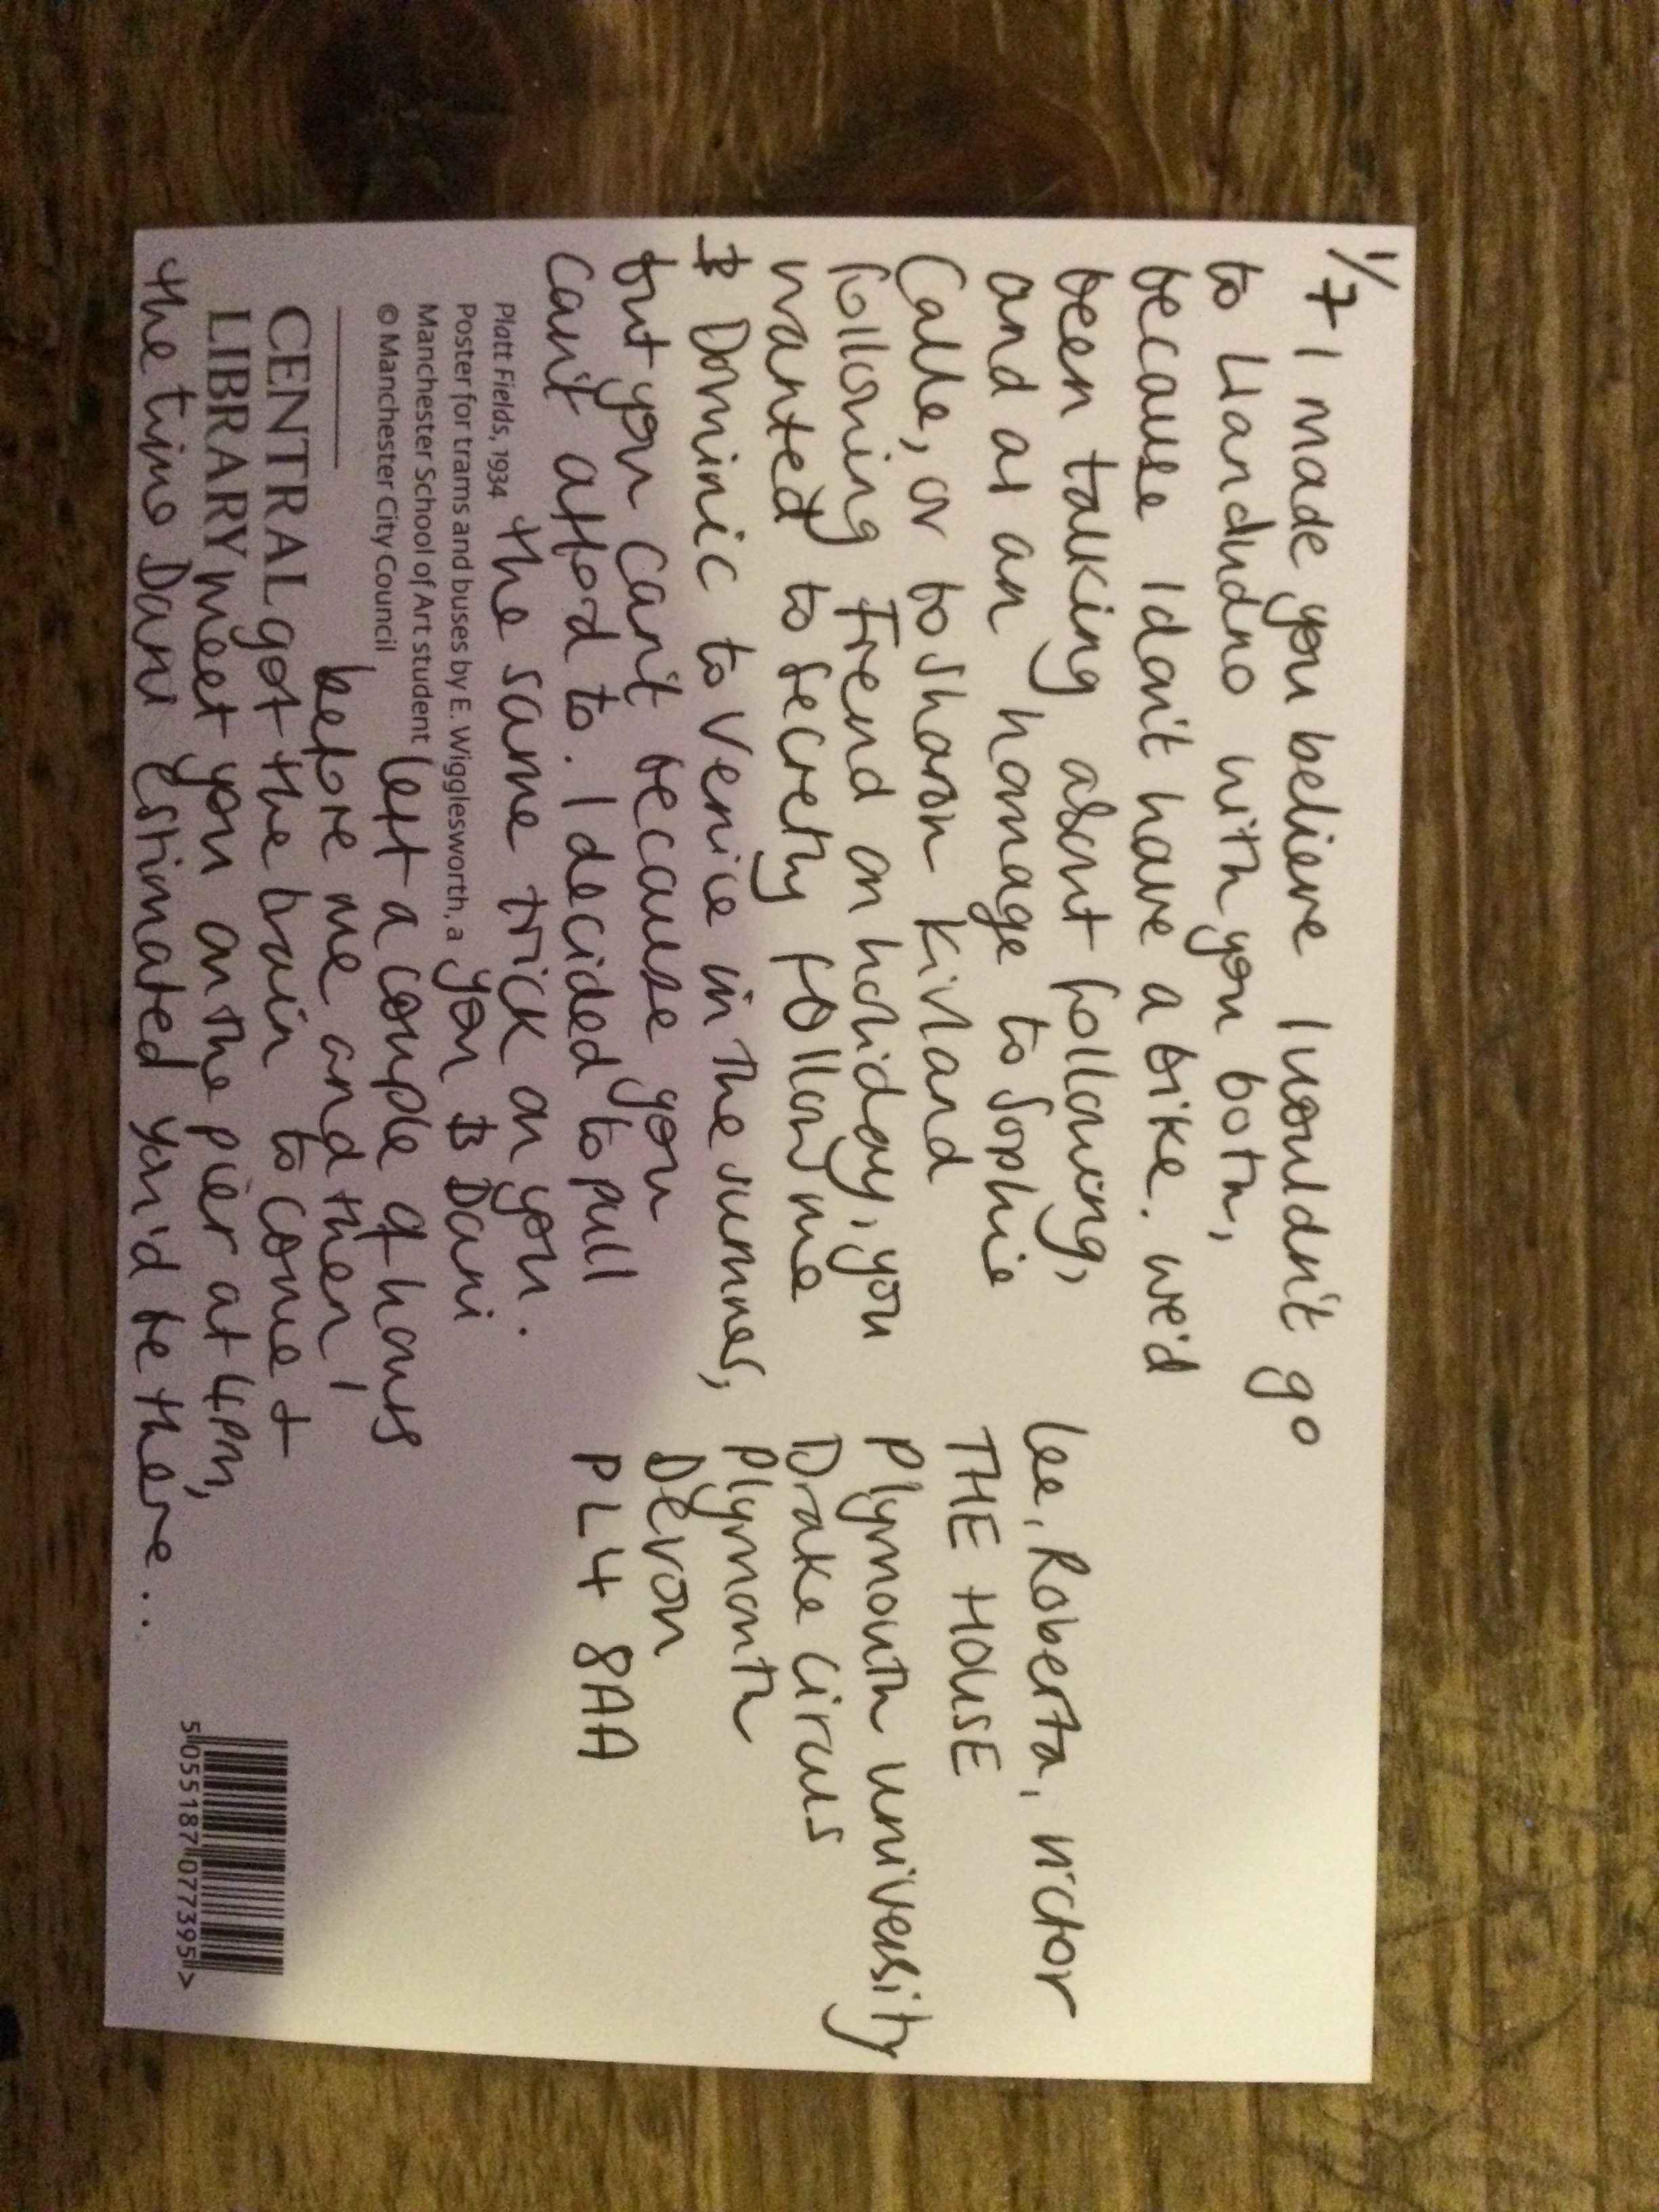 1/7 I made you believe I wouldn't go
to Llandudno with you both,
because I don't have a bike. We'd
been talking about following,
and as an homage to Sophie
Calle, or to Sharon Kivland
following Freud on holiday, you
wanted to secretly follow me
& Dominic to Venice in the summer,
but you can't because you
can't afford to. I decided to pull
the same trick on you.
you & Dani
left a couple of hours
before me and then I
got the train to come &
meet you on the pier at 4pm,
the time Dani estimated you'd be there...
Platt Fields, 1934
Poster for trams and buses by E. Wigglesworth, a
Manchester School of Art student
© Manchester City Council
CENTRAL
LIBRARY
Lee, Roberta, victor
THE HOUSE
Plymouth university
Drake Circus
Plymouth
Devon
PL4 8AA
5 055187 077395 >